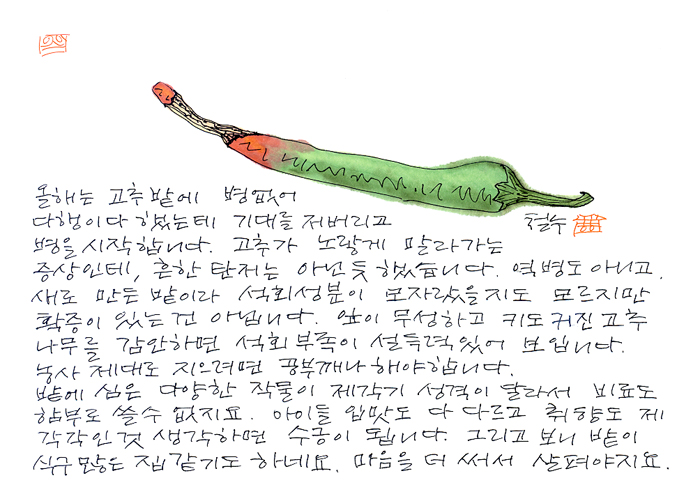 올해는 고추밭에 병없어
다행이다 했는데 기대를 저버리고
철수
병을 시작합니다. 고추가 노랗게 말라가는
증상인데, 흔한 탄저는 아닌 듯 했습니다. 역병도 아니고.
새로 만든 밭이라 석회성분이 모자랐을지도 모르지만
확증이 있는 건 아닙니다. 잎이 무성하고 키도 커진 고추
나무를 감안하면 석회부족이 설득력 있어 보입니다.
농사 제대로 지으려면 공부깨나 해야합니다.
밭에 심은 다양한 작물이 제각기 성격이 달라서 비료도
함부로 쓸 수 없지요. 아이들 입맛도 다 다르고 취향도 제
각각인것 생각하면 수긍이 됩니다. 그리고보니 밭이
식구많은 집같기도 하네요. 마음을 더 써서 살펴야지요.